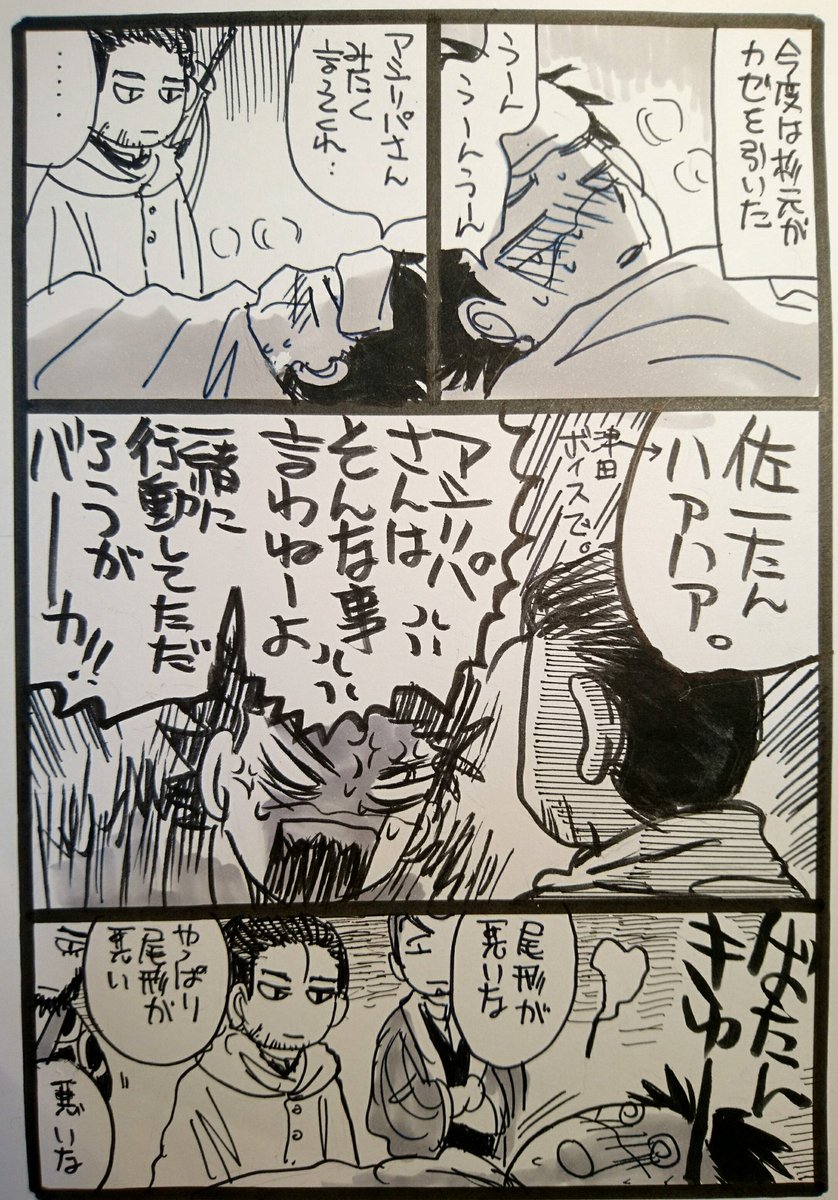 今度は杉元が
カゼを引いた
うーん
うーんうーん
アシリパさん
みたく
言ってくれ‥
‥‥
佐一たん
ハァハァ。
津田
ボイスで。
アシリパ
さんは
そんな事
言わねーよ
一緒に
行動してただ
ろうが
バーカ!!
ばたん
きゅー
尾形が
悪いな
やっぱり
尾形が
悪い
悪いな